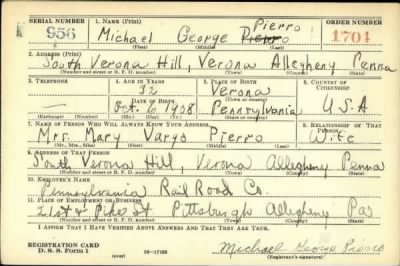 SERIAL NUMBER 1. NAME (Print) ORDER NUMBER
Pierro
956 Michael George Pierro 1701
(First) (Middle) (Last)
2. ADDRESS (Print)
South Verona Hill, Verona Allegheny Penna
(Number and street or R. F. D. number) (Town) (County) (State)
3. TELEPHONE 4. AGE IN YEARS 5. PLACE OF BIRTH 6. COUNTRY OF CITIZENSHIP
32 Verona
DATE OF BIRTH (Town or county)
Oct. 6 1908 Pennsylvania U.S.A
(Exchange) (Number) (Mo.) (Day) (Yr.) (State or country)
7. NAME OF PERSON WHO WILL ALWAYS KNOW YOUR ADDRESS 8. RELATIONSHIP OF THAT PERSON
Mrs. Mary Vargo Pierro Wife
(Mr., Mrs., Miss) (First) (Middle) (Last)
9. ADDRESS OF THAT PERSON
South Verona Hill, Verona, Allegheny Penna
(Number and street or R. F. D. number) (Town) (County) (State)
10. EMPLOYER'S NAME
Pennsylvania Rail Road Co.
11. PLACE OF EMPLOYMENT OR BUSINESS
21st & Pike St Pittsburgh Allegheny Pa
(Number and street or R. F. D. number) (Town) (County) (State)
I AFFIRM THAT I HAVE VERIFIED ABOVE ANSWERS AND THAT THEY ARE TRUE.
REGISTRATION CARD
D. S. S. Form 1 (over) Michael George Pierro
(Registrant's signature)